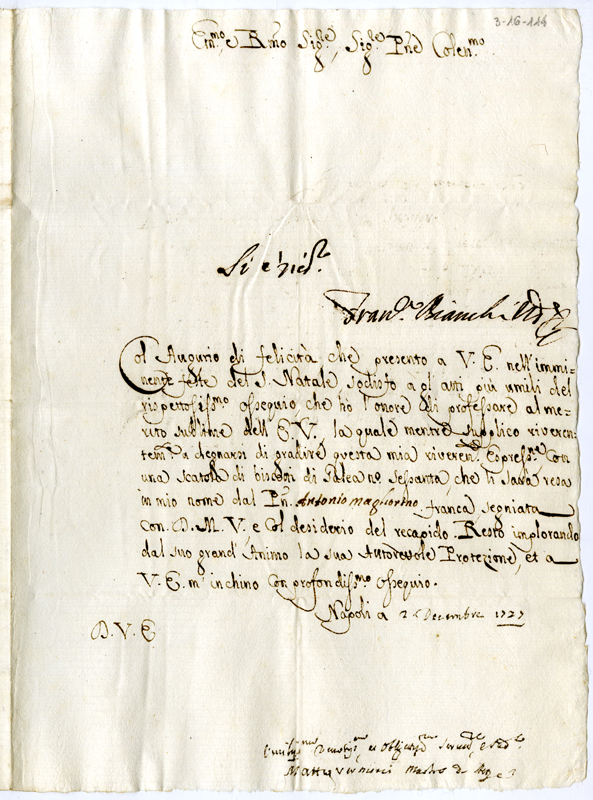 3-16-114
Em.mo, e R.mo Sig.re, Sig.re P.rne Colen.mo
Si è
Fran.co Bianchi
Col Augurio di felicità che presento a V. E. nell'immi-
nente feste del S. Natale sodisfo a gl'atti più umili del
rispettosiss.mo ossequio che hò l'onore di professare al me-
rito sublime dell'E. V., la quale mentre supplico riveren-
tem.e a degnarsi di gradire questa mia riveren. Espress.ne con
una scatola di biscotti di n.o sessanta, che li sarà resa
in mio nome dal P.n Antonio Magliorino franca segniata
con D. M. V., e Col desiderio del recapido Resto implorando
dal suo grand'Animo la sua Autorevole Protezione, et a
V. E. m'inchino Con profondiss.mo ossequio.
Napoli a 2 Decembre 1727
D. V. E.
Umiliss.mo Devotiss.mo et Obligatiss.mo Serv.re
mastro di